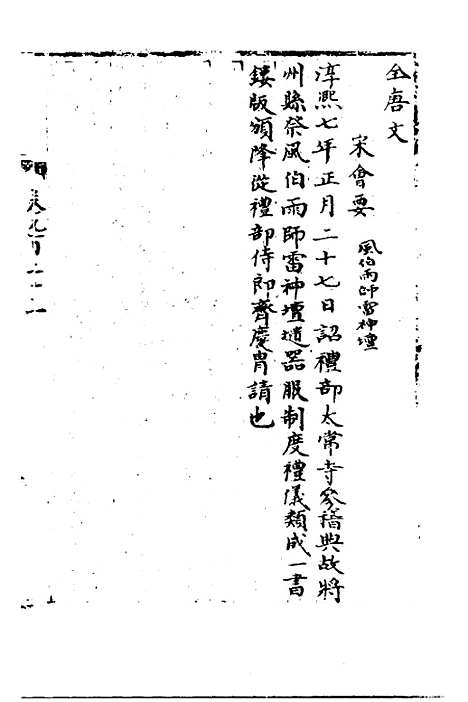 全唐文
宋會要 風伯雨師雷神壇
淳熙七年正月二十七日詔禮部太常寺參稽典故將
州縣祭風伯雨師雷神壇壝器服制度禮儀類成一書
鏤版頒降從禮部侍郎齊慶胄請也
卷九百二十二